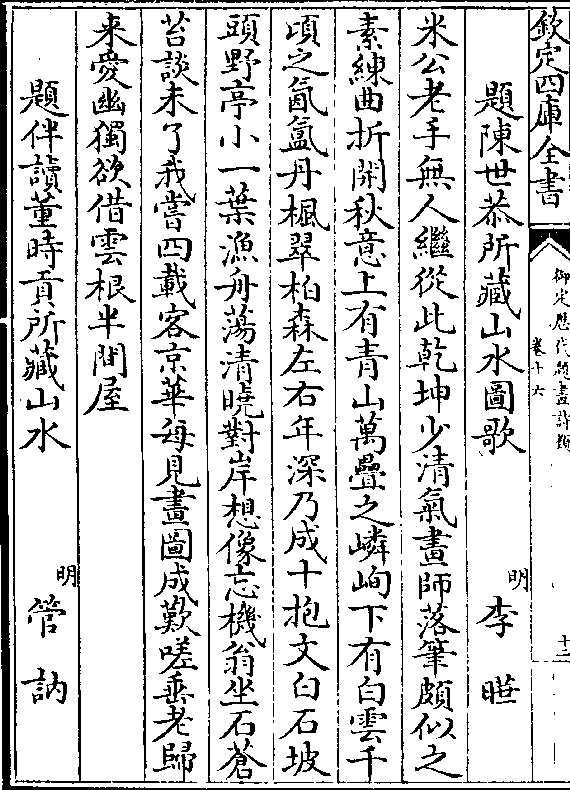 欽定四庫全書
御定歷代題畫詩類
卷十六
十二
題陳世恭所藏山水圖歌
明
李曄
米公老手無人繼從此乾坤少清氣畫師落筆頗似之
素練曲折開秋意上有青山萬疊之嶙峋下有白雲千
頃之氤氳丹楓翠柏森左右年深乃成十抱文白石坡
頭野亭小一葉漁舟蕩清曉對岸想像忘機翁坐石蒼
苔談未了我嘗四載客京華每見畫圖成歎嗟垂老歸
来愛幽獨欲借雲根半間屋
題伴讀董時貢所藏山水
明
管訥